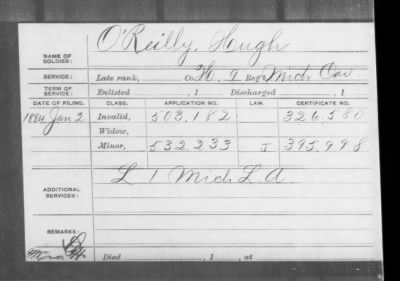 O'Reilly, Hugh
NAME OF SOLDIER:
SERVICE: Late rank, Co. H, 9 Reg't Mich Cav
TERM OF SERVICE: Enlisted , 1 Discharged , 1
DATE OF FILING. CLASS. APPLICATION NO. LAW. CERTIFICATE NO.
1884 Jan 2 Invalid, 503.182 326.580
Widow,
Minor, 532.233 J 395.998
L 1 Mich L. A.
ADDITIONAL SERVICES:
REMARKS:
Died , 1 , at